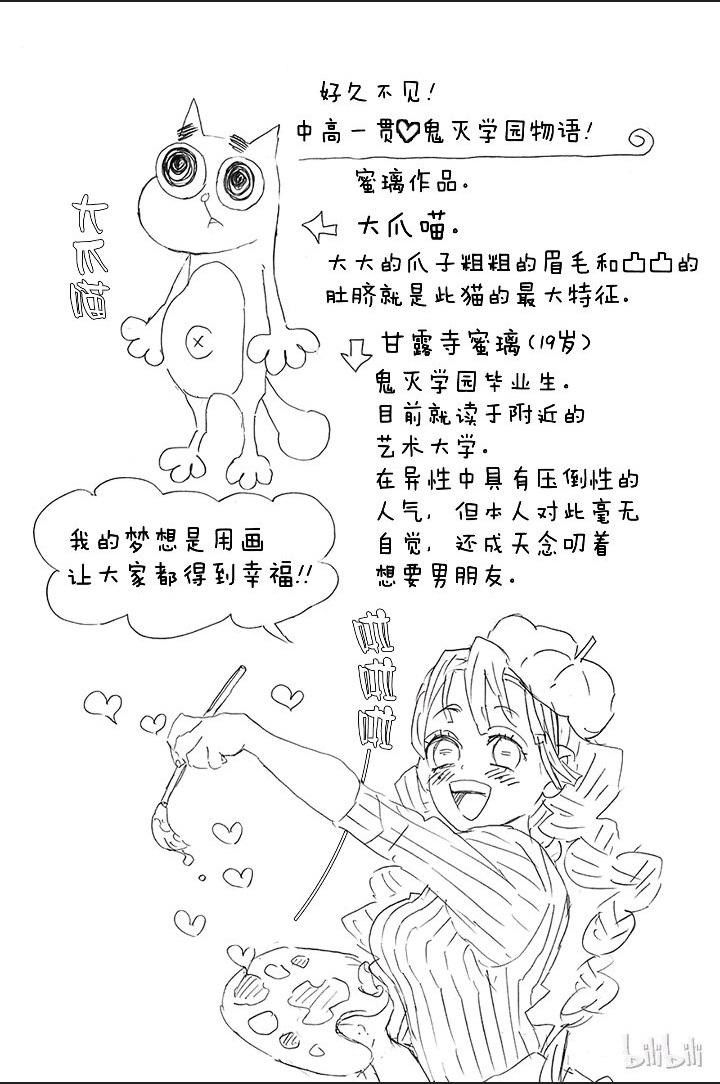 好久不见!
中高一贯♡鬼灭学园物语!
蜜璃作品.
大爪喵.
大大的爪子粗粗的眉毛和凸凸的
肚脐就是此猫的最大特征.
大爪猫
甘露寺蜜璃(19岁)
鬼灭学园毕业生.
目前就读于附近的
艺术大学.
在异性中具有压倒性的
人气, 但本人对此毫无
自觉, 还成天念叨着
想要男朋友.
我的梦想是用画
让大家都得到幸福!!
bilibili